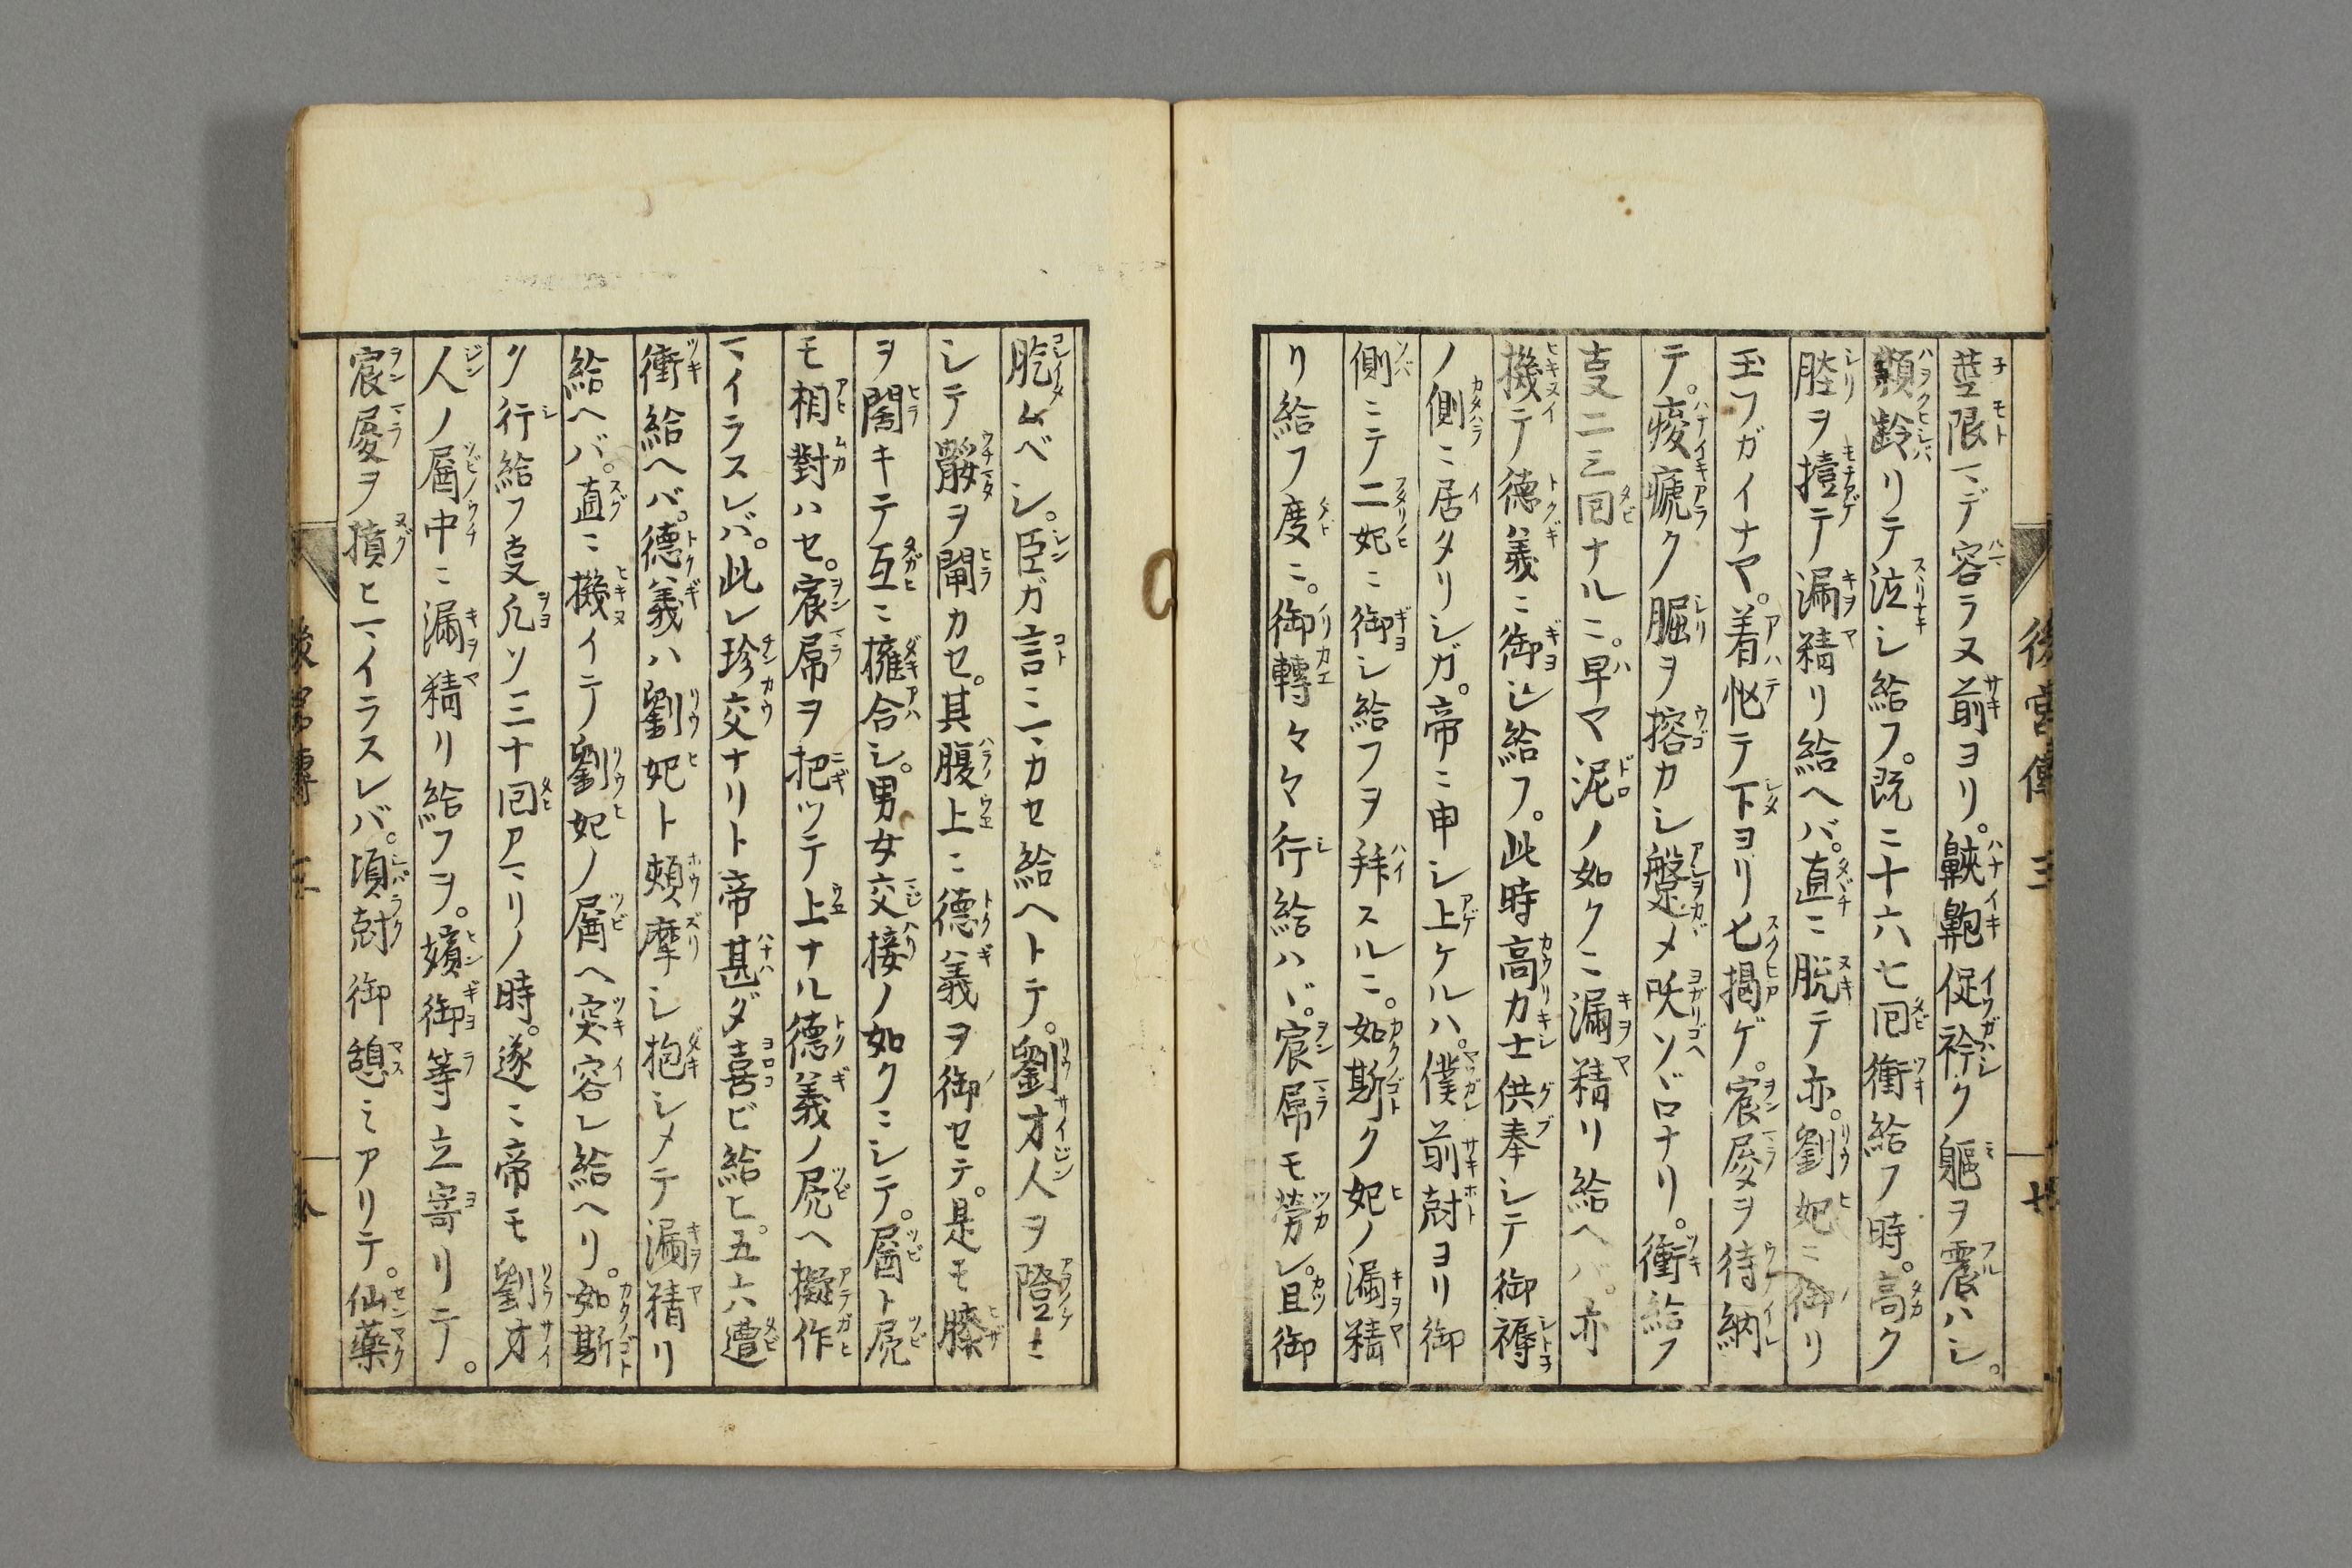 後宮傳 三
莖限マデ容ラヌ前ヨリ。鼽齁促衿ク軀ヲ震ハシ。
纇齡リテ泣シ給フ。既ニ十六七囘衝給フ時。高ク
膣ヲ擡テ漏精リ給ヘバ。直ニ脱テ亦。劉妃ニ御リ
玉フガイナマ。着怭テ下ヨリ匕揭ゲ。宸㞙ヲ待納
テ。瘘瘧ク腒ヲ搈カシ盤メ㕭ソヾロナリ。衝給フ
叓二三囘ナルニ。早マ泥ノ如クニ漏精リ給ヘバ。亦
機テ德義ニ御シ給フ。此時高力士供奉シテ御褥
ノ側ニ居タリシガ。帝ニ申シ上ケルハ。僕前尅ヨリ御
側ニテ二妃ニ御シ給フヲ拜スルニ。如斯ク妃ノ漏精
リ給フ度ニ。御轉々々行給ハヾ。宸屌モ勞カレ。且御
肐ムベシ。臣ガ言ニマカセ給ヘトテ。劉才人ヲ隥ニ
シテ䯝ヲ開カセ。其腹上ニ德義ヲ御セテ。是モ膝
ヲ闊キテ互ニ擁合シ。男女交接ノ如クニシテ。屄ト屄
モ相對ハセ。宸屌ヲ把ツテ上ナル德義ノ屄ヘ擬作
マイラスレバ。此レ珍交ナリト帝甚ダ喜ビ給ヒ。五六遭
衝給ヘバ。德義ハ劉妃ト頰摩シ抱シメテ漏精リ
給ヘバ。直ニ機イテ劉妃ノ屄ヘ突容レ給ヘリ。如斯
ク行給フ叓凢ソ三十囘アマリノ時。遂ニ帝モ劉才
人ノ屄中ニ漏精リ給フヲ。嬪御等立寄リテ。
宸㞙ヲ擯ヒマイラスレバ。頃尅御憩ミアリテ。仙藥